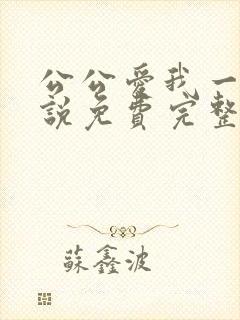 公公愛我一
說免費完整
蘇鑫波